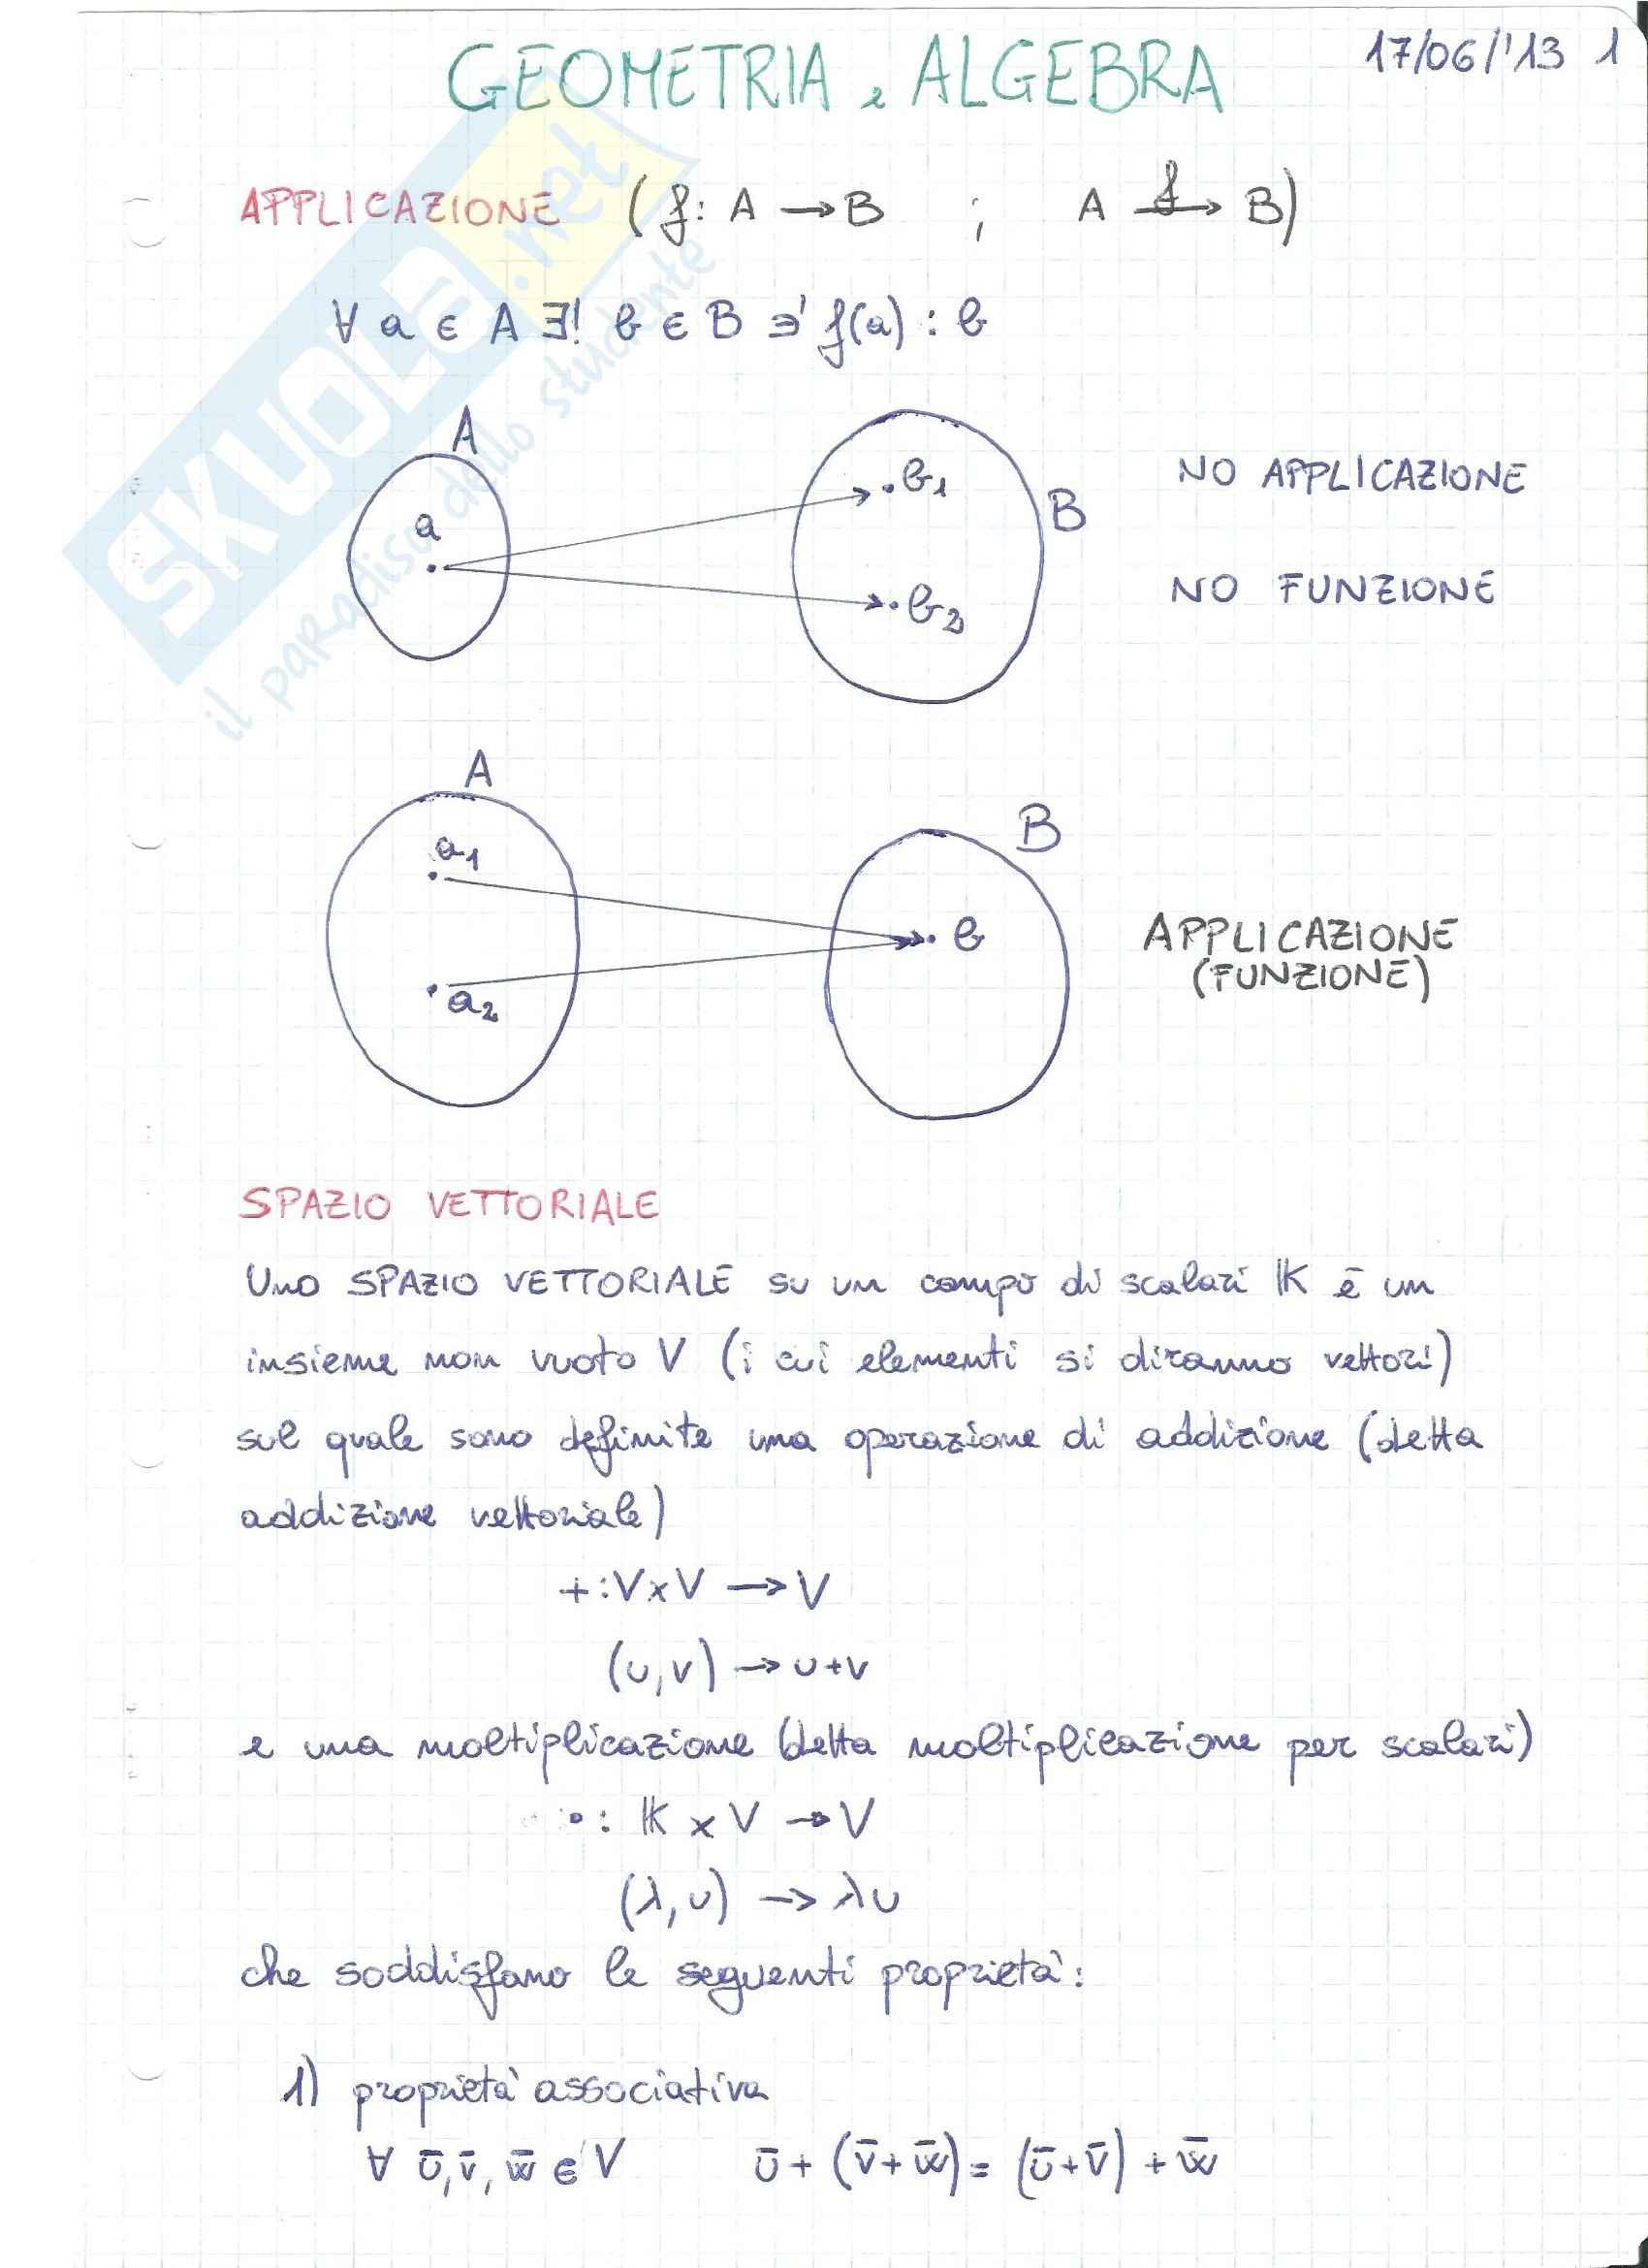 GEOMETRIA e ALGEBRA
17/06/'13 1
APPLICAZIONE (f: A → B ; A f→ B)
∀ a ∈ A ∃! b ∈ B ∋' f(a) : b
A
a
b1
b2
B
NO APPLICAZIONE
NO FUNZIONE
A
a1
a2
B
b
APPLICAZIONE
(FUNZIONE)
SPAZIO VETTORIALE
Uno SPAZIO VETTORIALE su un campo di scalari K è un
insieme non vuoto V (i cui elementi si diranno vettori)
sul quale sono definite una operazione di addizione (detta
addizione vettoriale)
+: V x V → V
(u, v) → u+v
e una moltiplicazione (detta moltiplicazione per scalari)
•: K x V → V
(λ, u) → λu
che soddisfano le seguenti proprietà:
1) proprietà associativa
∀ ū, v̄, w̄ ∈ V ū + (v̄ + w̄) = (ū + v̄) + w̄
SKUOLA.net
il paradiso dello studente